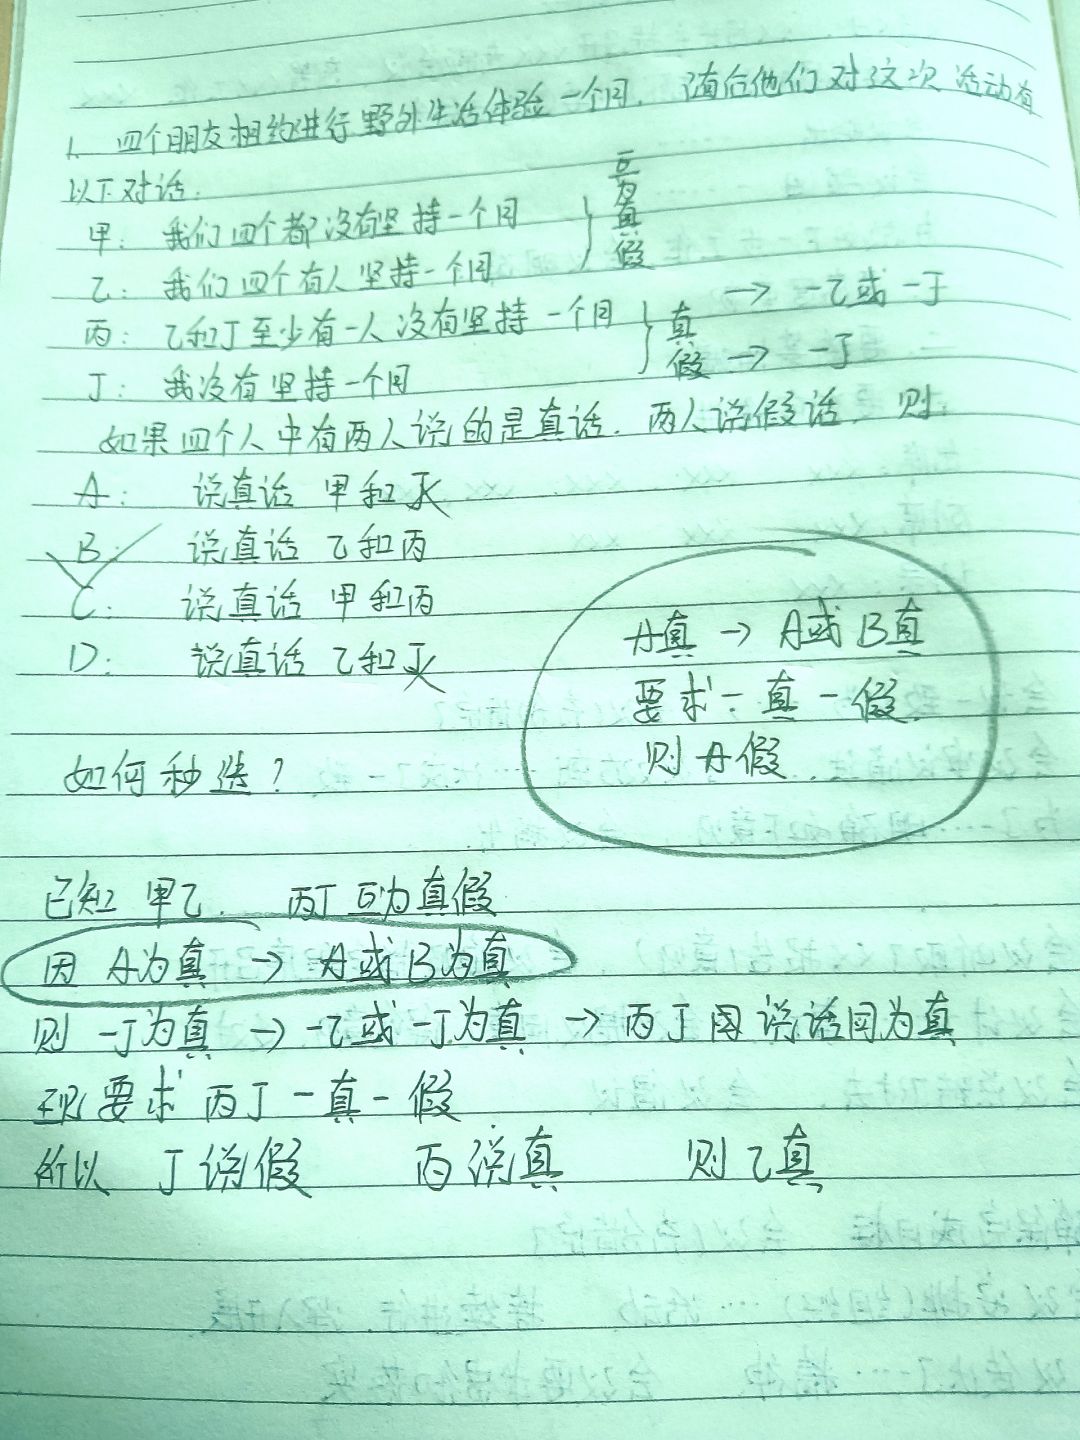 1. 四个朋友相约进行野外生活体验一个月. 随后他们对这次活动有
以下对话:
甲: 我们四个都没有坚持一个月 } 互为真假
乙: 我们四个有人坚持一个月
丙: 乙和丁至少有一人没有坚持一个月 } 真 → ¬乙或¬丁
丁: 我没有坚持一个月 假 → ¬丁
如果四个人中有两人说的是真话. 两人说假话, 则:
A: 说真话 甲和
B: 说真话 乙和丙
C: 说真话 甲和丙
D: 说真话 乙和
A真 → A或B真
要求一真一假
则A假
如何秒选?
已知 甲乙. 丙丁互为真假
因 A为真 → A或B为真
则 ¬丁为真 → ¬乙或¬丁为真 → 丙丁 说话同为真
现要求丙丁一真一假
所以 丁说假 丙说真 则乙真